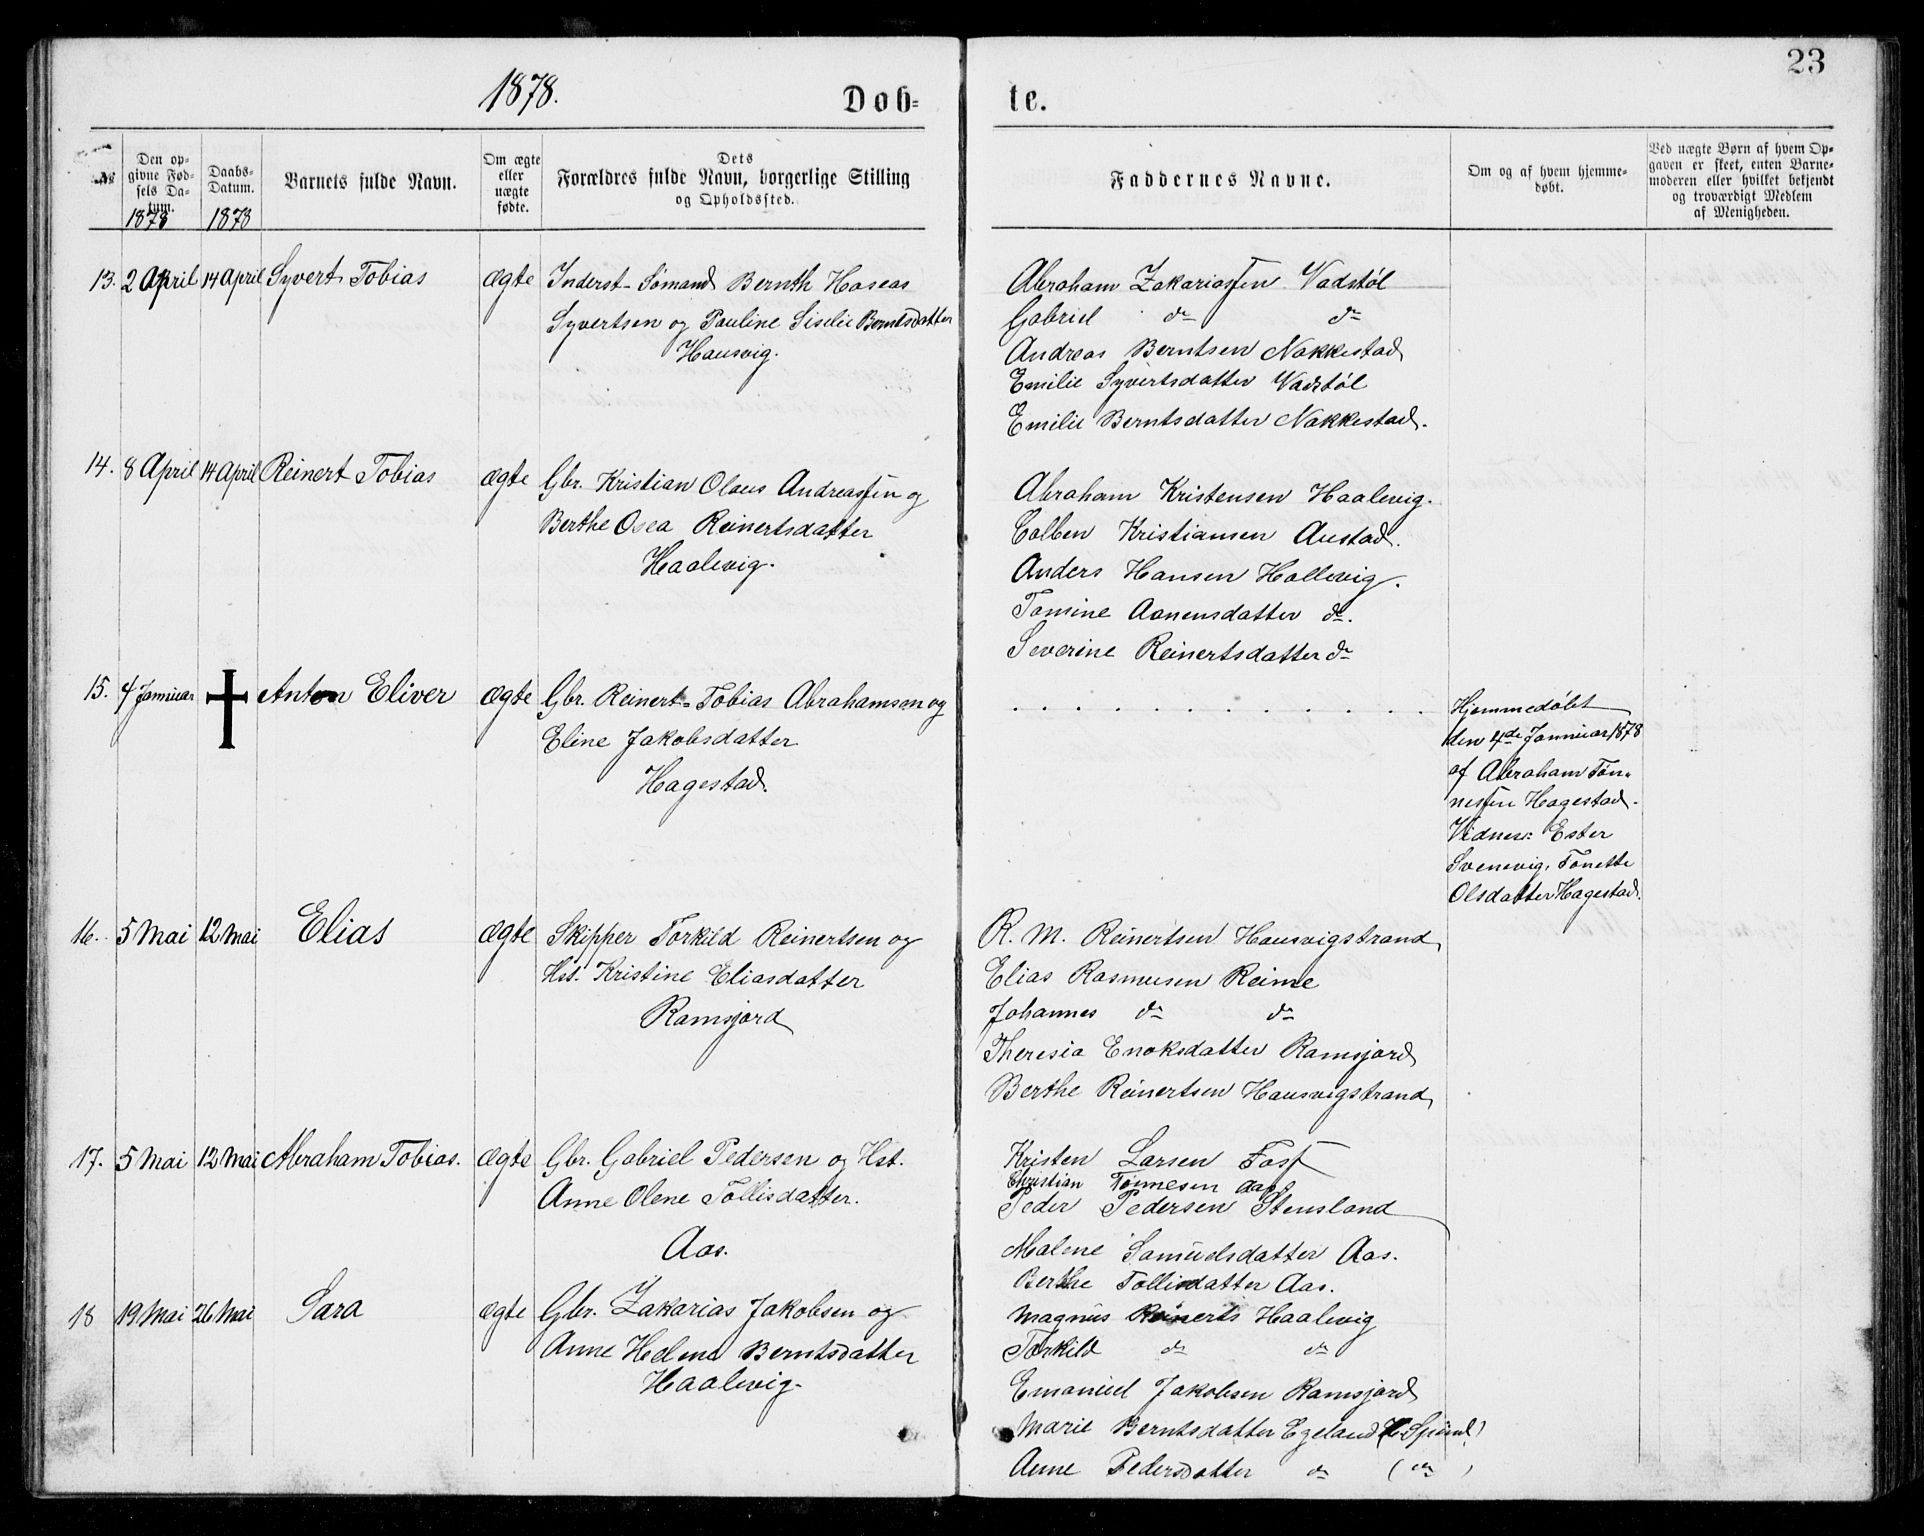 23
1878.
Døb-
te.
№
Den op-
givne Fød-
sels Da-
tum.
1878
Daabs-
Datum.
1878
Barnets fulde Navn.
Om ægte
eller
uægte
fødte.
Dets
Forældres fulde Navn, borgerlige Stilling
og Opholdssted.
Faddernes Navne.
Om og af hvem hjemme-
døbt.
Ved uægte Børn af hvem Op-
gaven er skeet, enten Barne-
moderen eller hvilket bekjendt
og troværdigt Medlem
af Menigheden.
13. 2 April 14 April Syvert Tobias ægte Inderst-Sømand Bernth Hoseas
Syvertsen og Pauline Siselie Berntsdatter
Hausvig.
Abraham Zakariassen Vadstøl
Gabriel do do
Andreas Berntsen Nakkestad
Emilie Syvertsdatter Vadstøl
Emilie Berntsdatter Nakkestad.
14. 8 April 14 April Reinert Tobias ægte Gbr. Kristian Olaus Andreassen og
Berthe Osea Reinertsdatter
Haalevig.
Abraham Kristensen Haalevig.
Colben Kristiansen Austad.
Anders Hansen Hallevig.
Tomine Aanensdatter do.
Severine Reinertsdatter do
15. 4 Januar Anton Eliver ægte Gbr. Reinert-Tobias Abrahamsen og
Eline Jakobsdatter
Hagestad.
Hjemmedøbt
den 4de Januar 1878
af Abraham Tøn-
nessen Hagestad.
Vidner: Ester
Svenevig, Tonette
Olsdatter Hagestad.
16. 5 Mai 12 Mai Elias ægte Skipper Torkild Reinertsen og
Hst. Kristine Eliasdatter
Ramsjord
R. M. Reinertsen Hausvigstrand
Elias Rasmusen Reime
Johannes do do
Theresia Enoksdatter Ramsjord
Berthe Reinertsen Hausvigstrand
17. 5 Mai 12 Mai Abraham Tobias. ægte Gbr. Gabriel Pedersen og Hst.
Anne Olene Tollisdatter.
Aas.
Kristen Larsen Foss
Christian Tønnesen Aas
Peder Pedersen Stensland
Malene Samuelsdatter Aas.
Berthe Tollisdatter Aas.
18 19 Mai 26 Mai Sara ægte Gbr. Zakarias Jakobsen og
Anne Helene Berntsdatter
Haalevig.
Magnus Reinerts Haalevig
Torkild do do
Emanuel Jakobsen Ramsjord
Marie Berntsdatter Egeland
Anne Pedersdatter do (do)